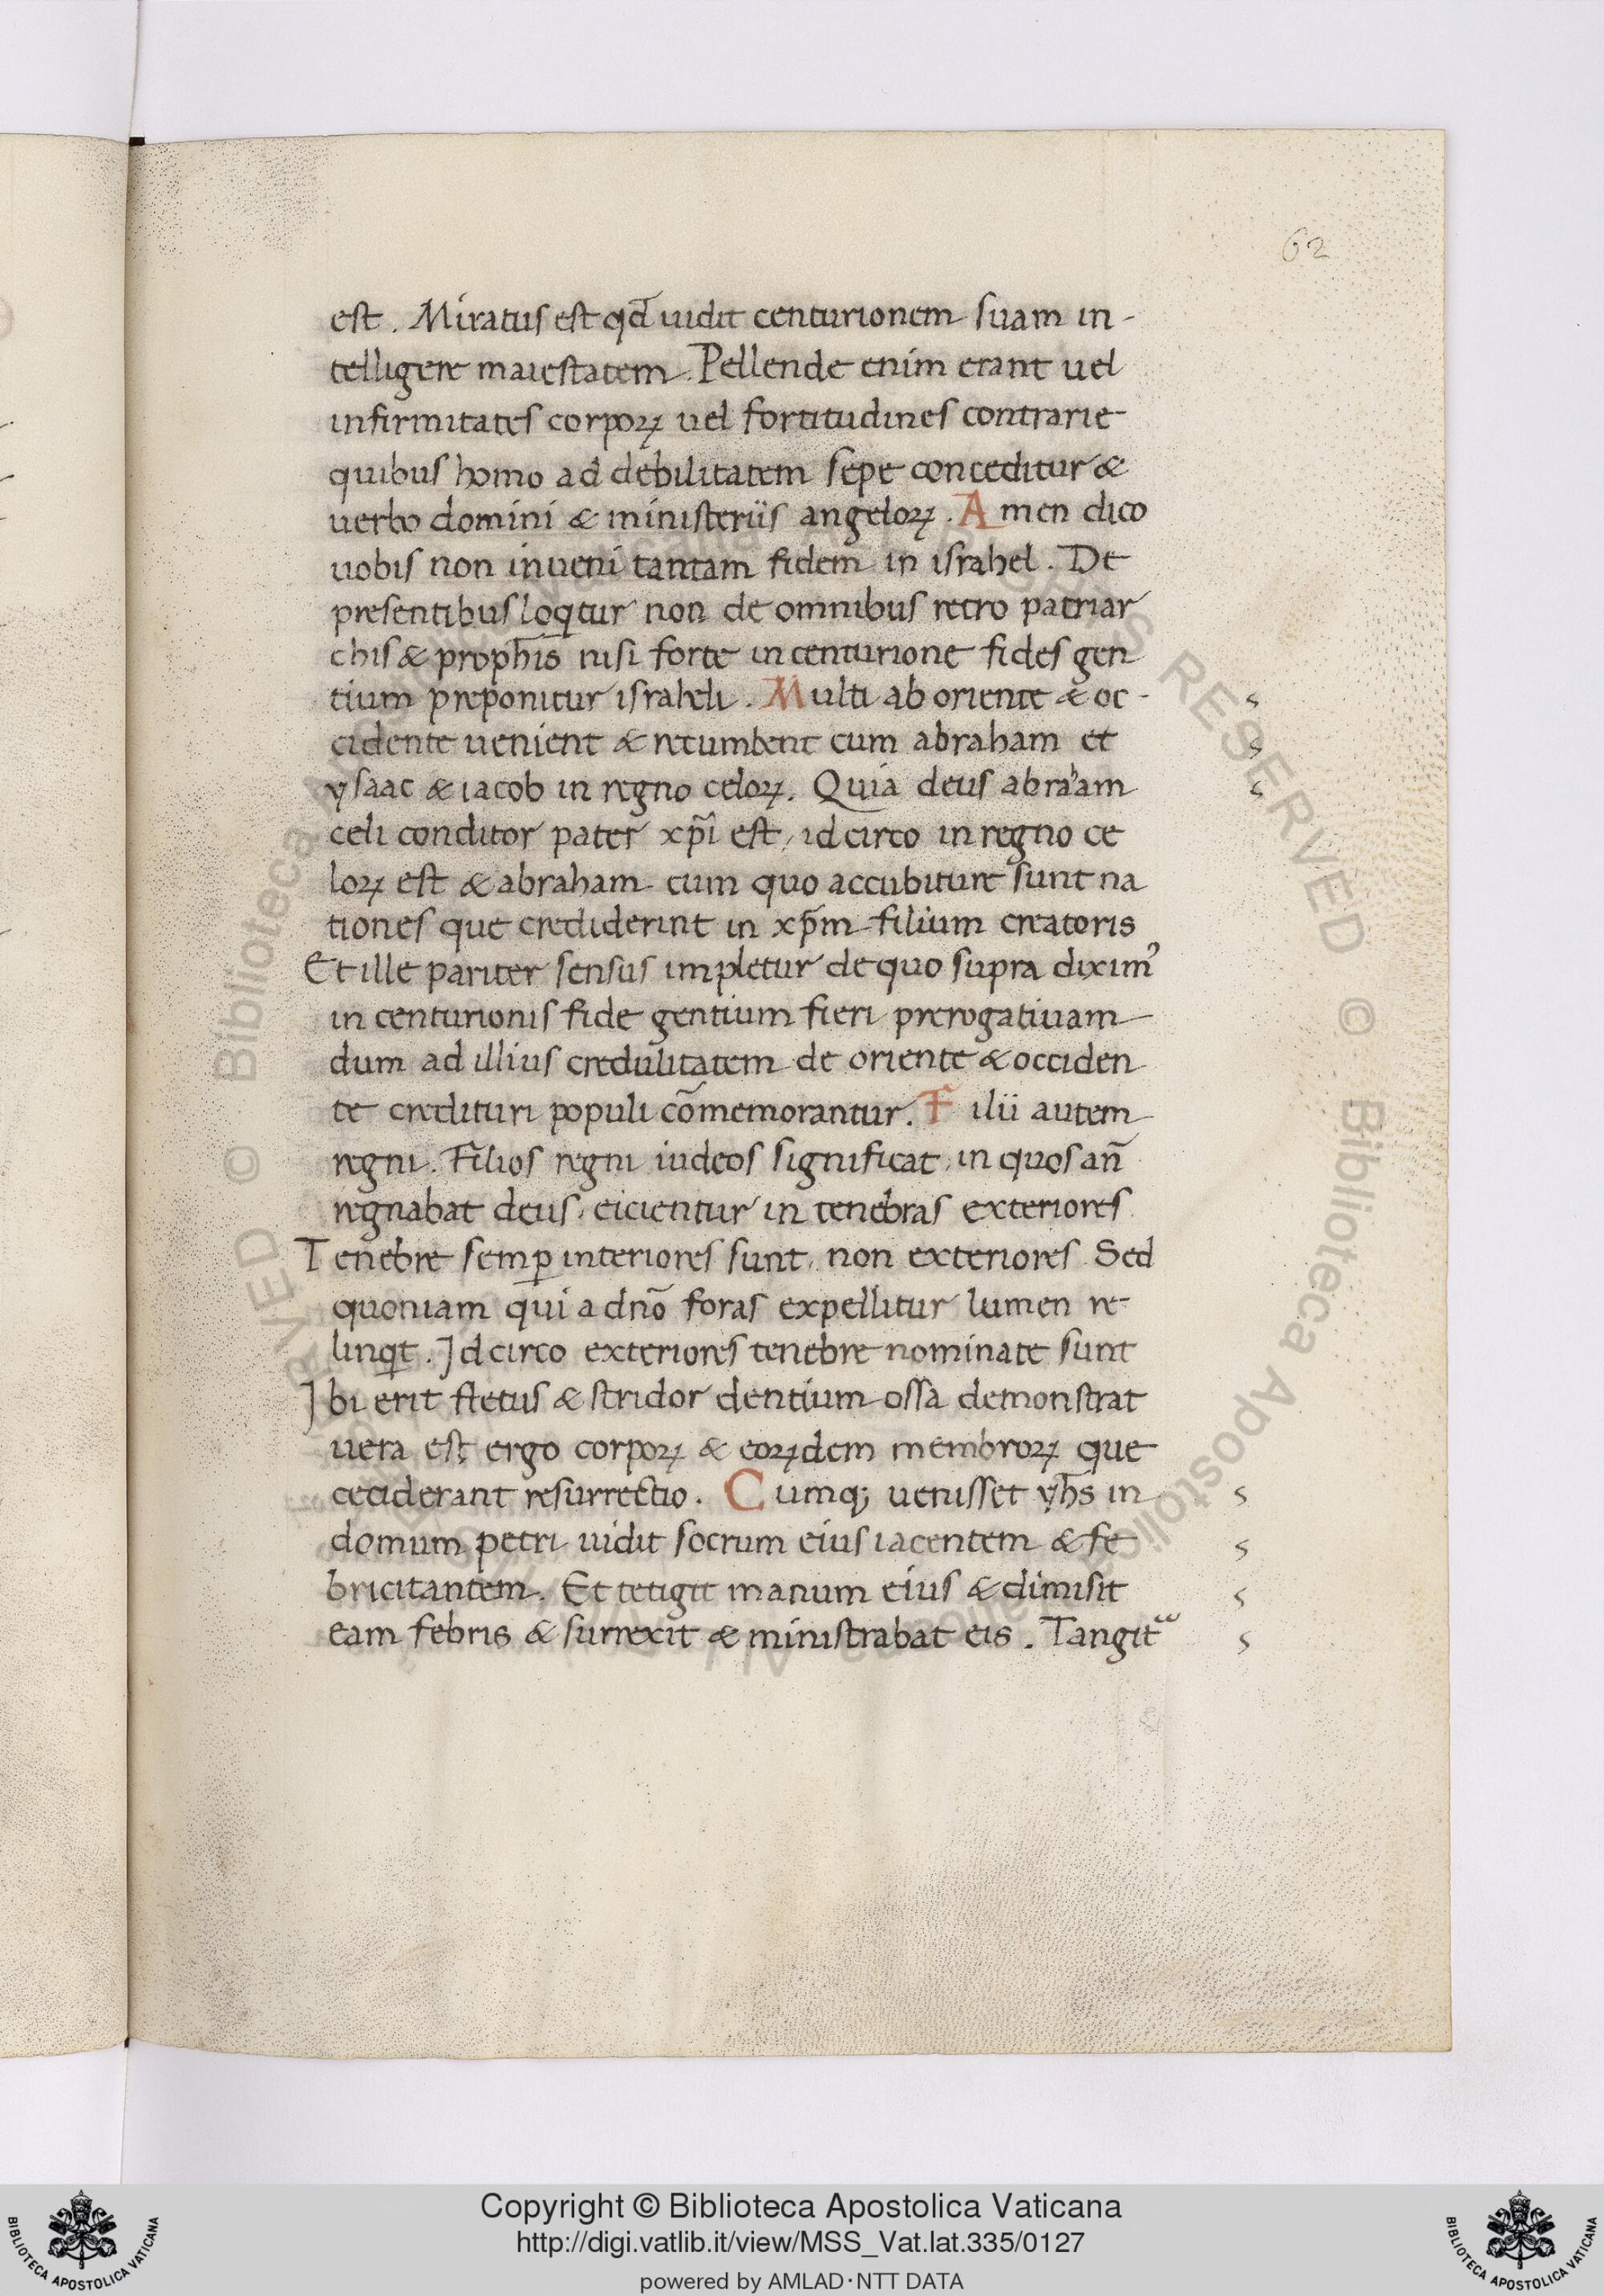 62
est. Miratus est qđ uidit centurionem suam in-
telligere maiestatem. Pellende enim erant uel
infirmitates corpoꝝ uel fortitudines contrarie
quibus homo ad debilitatem sepe conceditur &
uerbo domini & ministeriis angeloꝝ. Amen dico
uobis non inueni tantam fidem in israhel. De
presentibus loqͥtur non de omnibus retro patriar
chis & prophīs nisi forte in centurione fides gen
tium preponitur israheli. Multi ab oriente & oc-
cidente uenient & recumbent cum abraham et
ysaac & iacob in regno celoꝝ. Quia deus abraham
celi conditor pater xp̄i est, idcirco in regno ce
loꝝ est & abraham cum quo accubiture sunt na
tiones que crediderint in xp̄m filium creatoris
Et ille pariter sensus impletur de quo supra diximꝰ
in centurionis fide gentium fieri prerogatiuam
dum ad illius credulitatem de oriente & occiden
te credituri populi cōmemorantur. Filii autem
regni. Filios regni iudeos significat, in quos an̄
regnabat deus, eicientur in tenebras exteriores
Tenebre semꝑ interiores sunt, non exteriores Sed
quoniam qui a dn̄o foras expellitur lumen re-
linqͥt. Idcirco exteriores tenebre nominate sunt
Ibi erit fletus & stridor dentium ossa demonstrat
uera est ergo corpoꝝ & eoꝝdem membroꝝ que
ceciderant resurrectio. Cumqꝫ uenisset yhs̄ in
domum petri uidit socrum eius iacentem & fe
bricitantem. Et tetigit manum eius & dimisit
eam febris & surrexit & ministrabat eis. Tangit
Copyright © Biblioteca Apostolica Vaticana
http://digi.vatlib.it/view/MSS_Vat.lat.335/0127
powered by AMLAD·NTT DATA
BIBLIOTECA APOSTOLICA VATICANA
BIBLIOTECA APOSTOLICA VATICANA